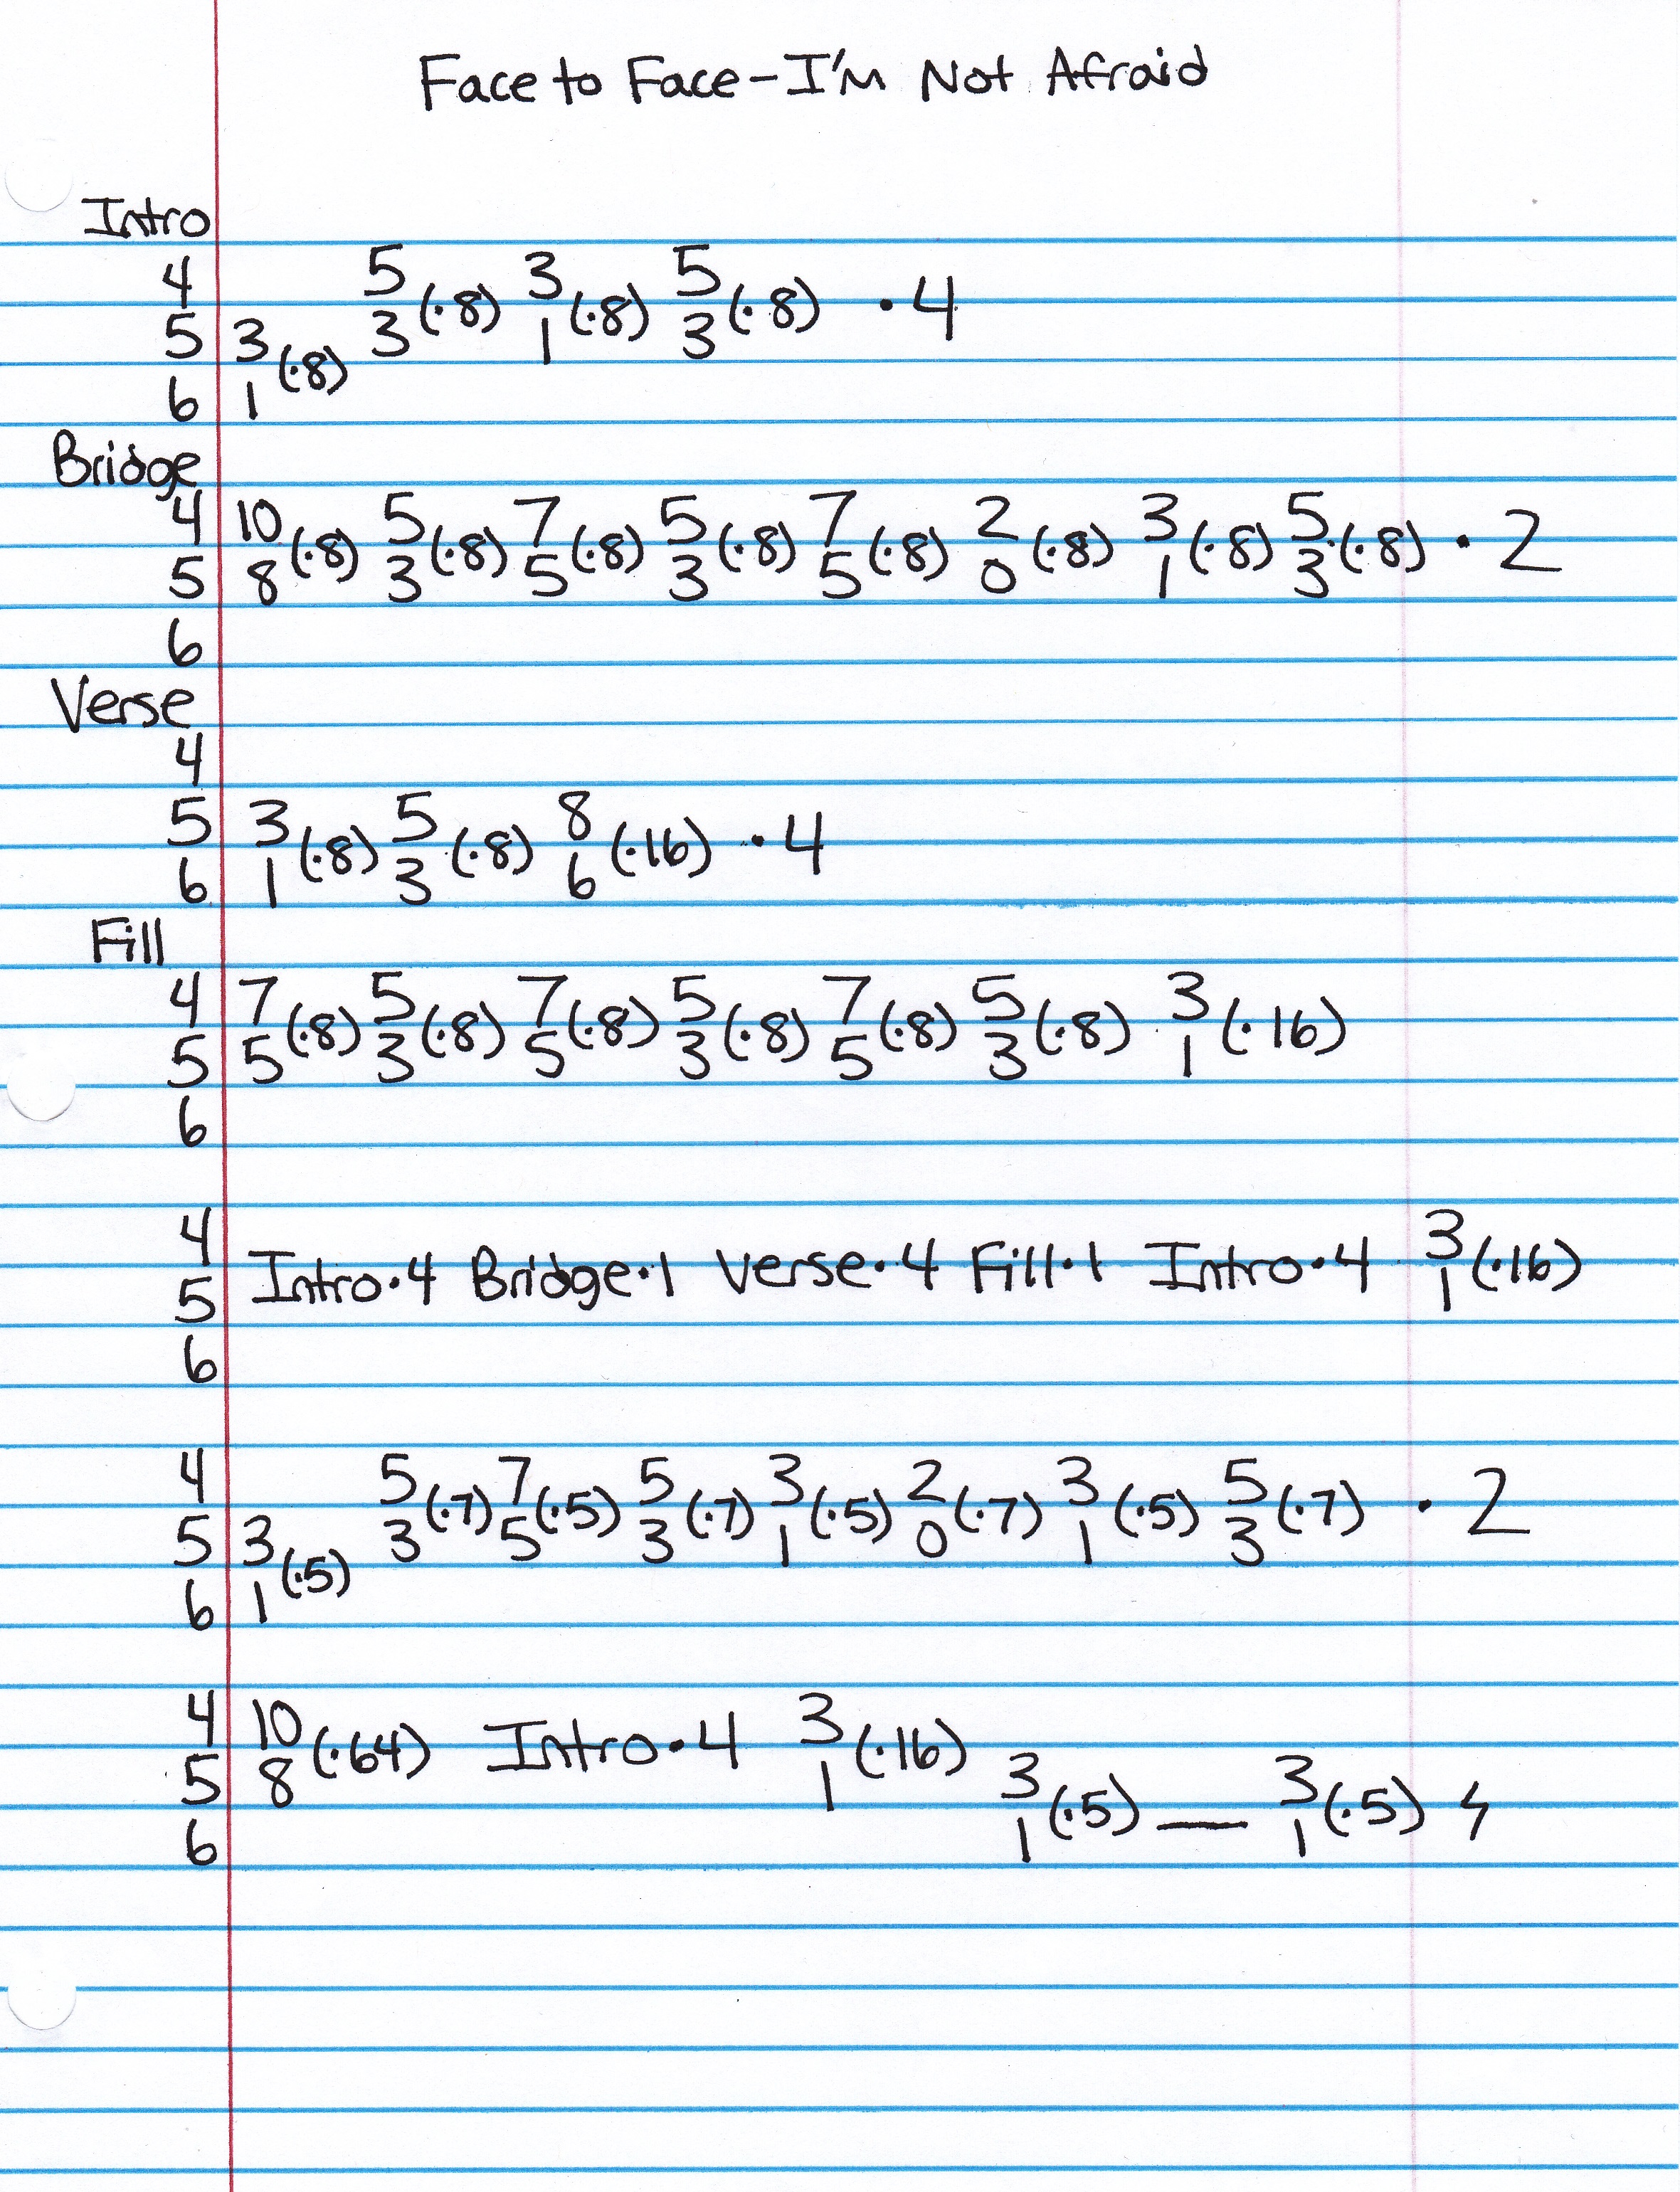 Face to Face - I'm Not Afraid
Intro
4 5 (·8) 3 (·8) 5 (·8) · 4
5 3 (·8) 3 1 3
6 1
Bridge
4 10 (·8) 5 (·8) 7 (·8) 5 (·8) 7 (·8) 2 (·8) 3 (·8) 5 (·8) · 2
5 8 3 5 3 5 0 1 3
6
Verse
4
5 3 (·8) 5 (·8) 8 (·16) · 4
6 1 3 6
Fill
4 7 (·8) 5 (·8) 7 (·8) 5 (·8) 7 (·8) 5 (·8) 3 (·16)
5 5 3 5 3 5 3 1
6
4 3 (·16)
5 Intro·4 Bridge·1 Verse·4 Fill·1 Intro·4 1
6
4 5 (·7) 7 (·5) 5 (·7) 3 (·5) 2 (·7) 3 (·5) 5 (·7) · 2
5 3 (·5) 3 5 3 1 0 1 3
6 1
4 10 (·64) Intro·4 3 (·16)
5 8 1 3 (·5) — 3 (·5)
6 1 1